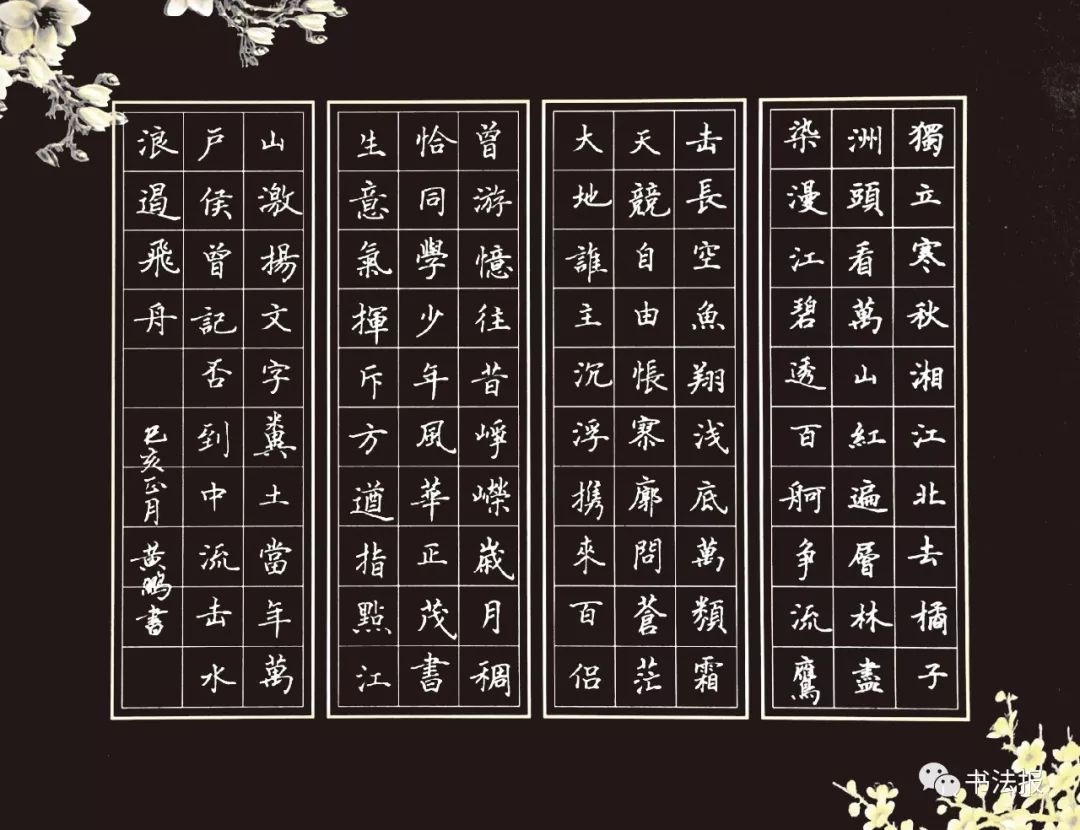 獨立寒秋湘江北去橘子
洲頭看萬山紅遍層林盡
染漫江碧透百舸争流鷹
击長空魚翔浅底萬類霜
天競自由悵寥廓問蒼茫
大地誰主沉浮携來百侣
曾游憶往昔崢嶸歲月稠
恰同學少年風華正茂書
生意氣揮斥方遒指點江
山激揚文字糞土當年萬
户侯曾記否到中流击水
浪遏飛舟 己亥正月 黄鹏書
书法报